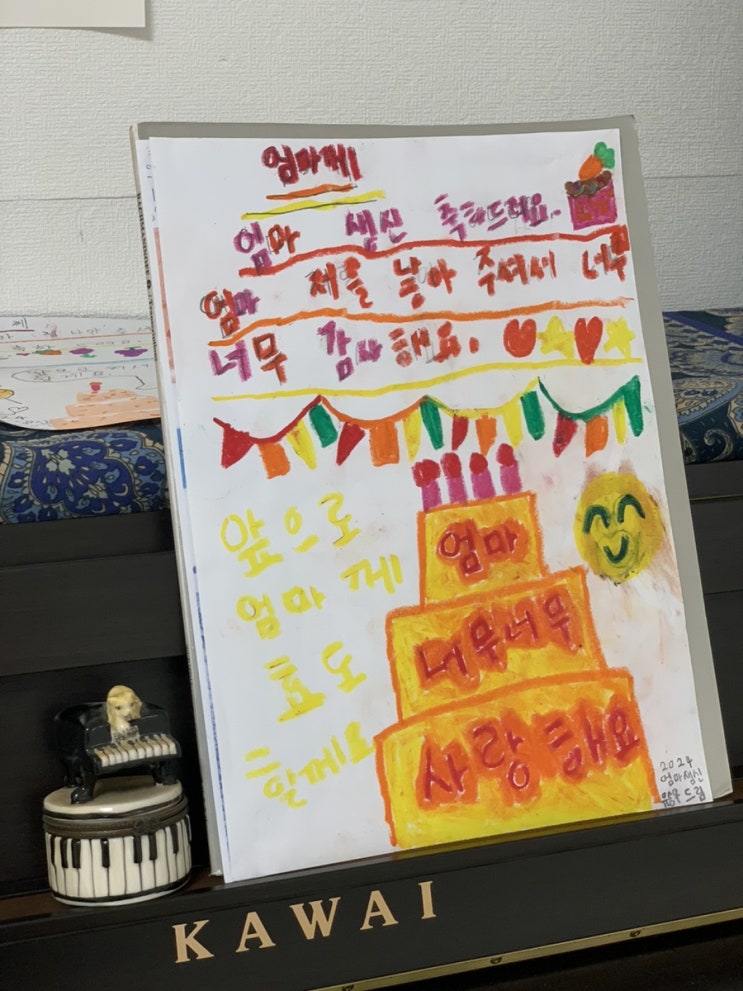 엄마께
엄마 생신 축하드려요.
엄마 저를 낳아 주셔서 너무
너무 감사해요.
앞으로
엄마 께
효도
할께요
엄마
너무너무
사랑해요
2024
엄마생신
드림
KAWAI